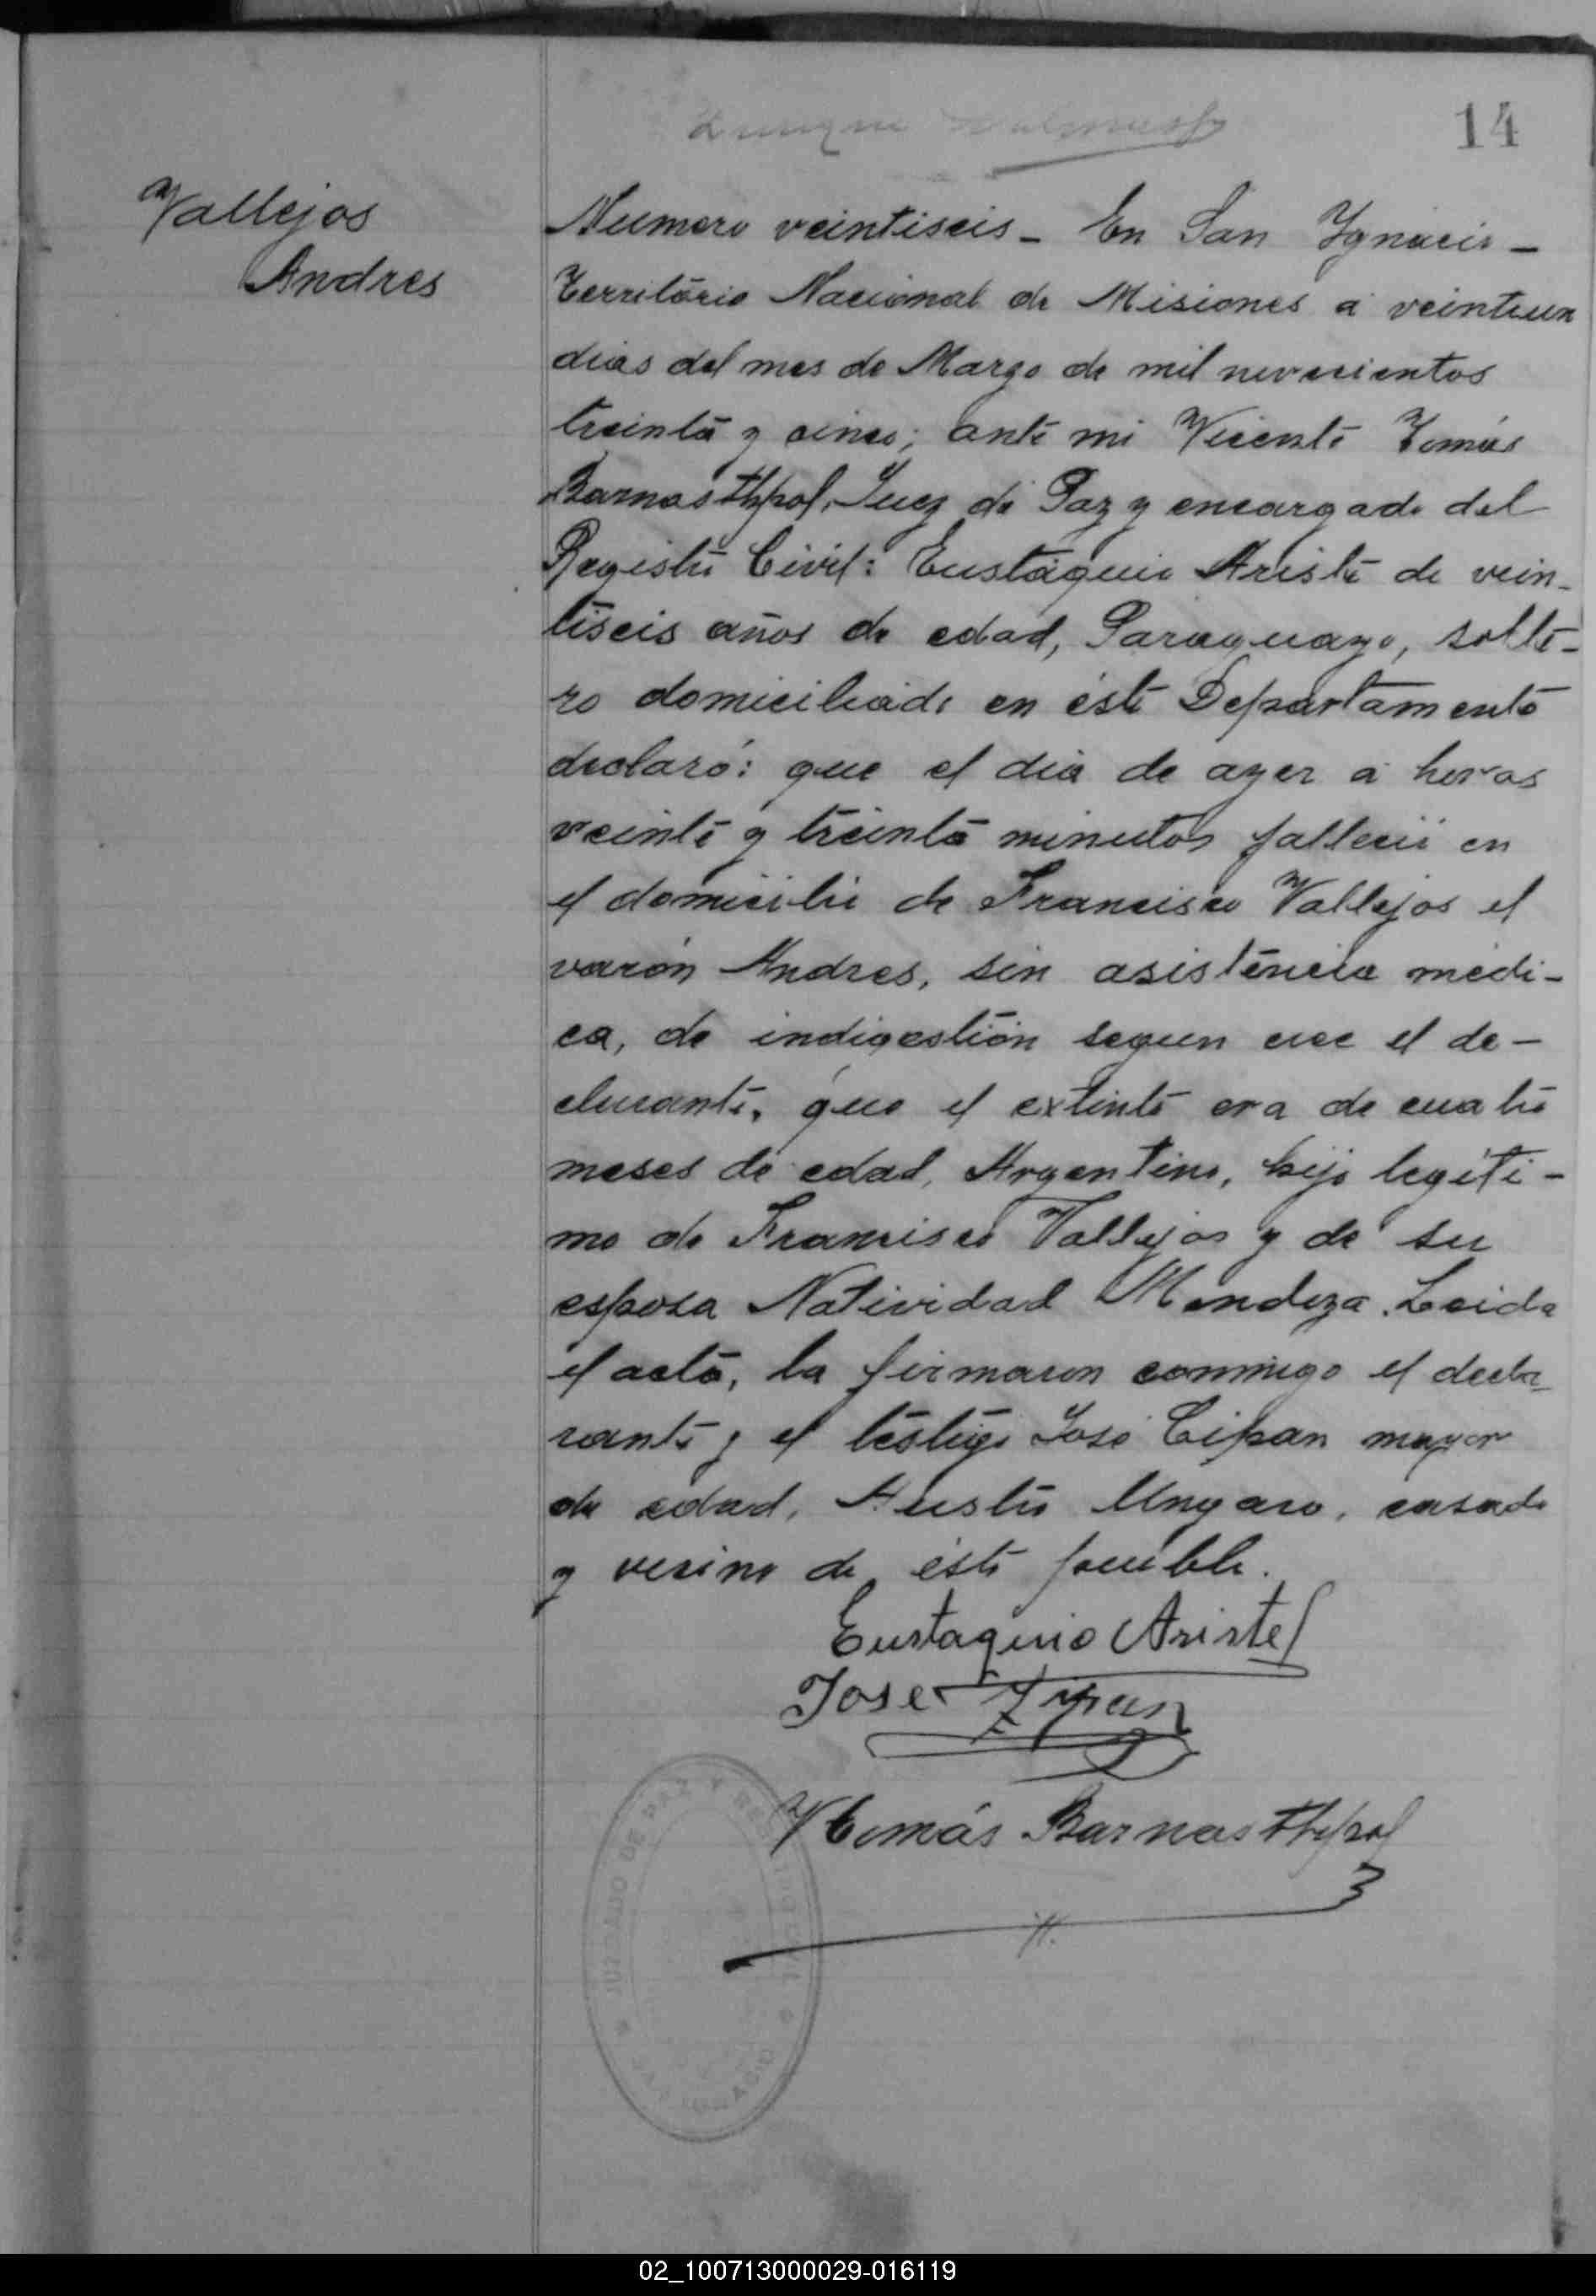 14
Vallejos
Andres
Numero veintiseis - En San Ygnacio -
Território Nacional de Misiones a veintiun
dias del mes de Marzo de mil novecientos
treinta y cinco; ante mi Vicente Tomás
Barnasthpol, Juez de Paz y encargado del
Registro Civil: Eustaquio Ariste de vein-
tiseis años de edad, Paraguayo, solte-
ro domiciliado en éste Departamento
declaró: que el dia de ayer a horas
veinte y treinta minutos falleció en
el domicilio de Francisco Vallejos el
varón Andres, sin asistencia médi-
ca, de indigestión segun cree el de-
clarante, que el extinto era de cuatro
meses de edad, Argentino, hijo legíti-
mo de Francisco Vallejos y de su
esposa Natividad Mendoza. Leida
el acta, la firmaron conmigo el decla-
rante y el testigo José Cipan mayor
de edad, Austro Ungaro, casado
y vecino de éste pueblo.
Eustaquio Ariste
Jose Zipan
VTomás Barnasthpol
JUZGADO DE PAZ Y REGISTRO CIVIL
SAN IGNACIO
02_100713000029-016119